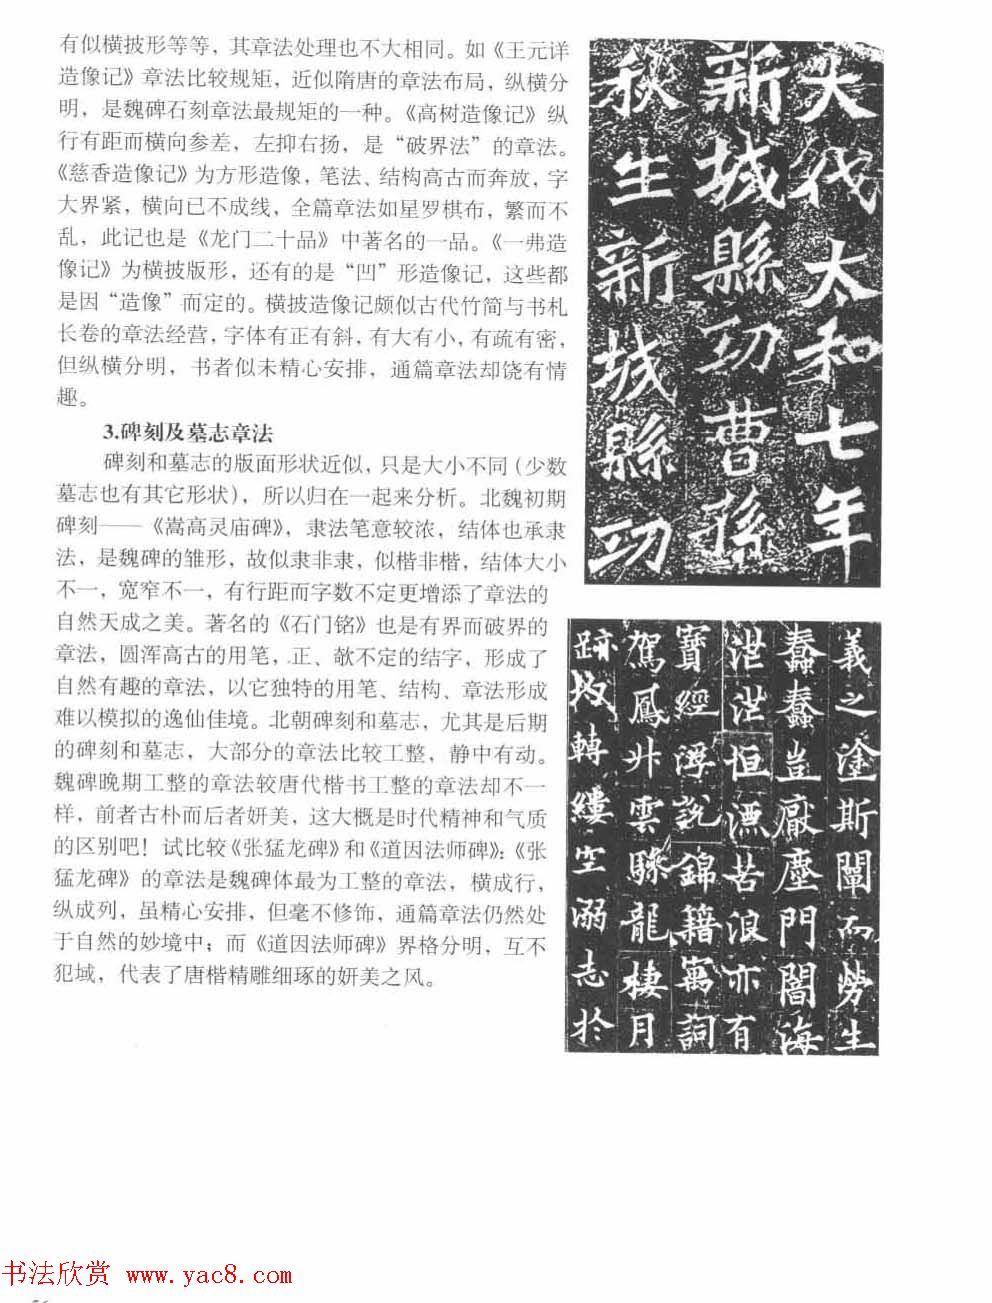 有似横披形等等，其章法处理也不大相同。如《王元详
造像记》章法比较规矩，近似隋唐的章法布局，纵横分
明，是魏碑石刻章法最规矩的一种。《高树造像记》纵
行有距而横向参差，左抑右扬，是“破界法”的章法。
《慈香造像记》为方形造像，笔法、结构高古而奔放，字
大界紧，横向已不成线，全篇章法如星罗棋布，繁而不
乱，此记也是《龙门二十品》中著名的一品。《一弗造
像记》为横披版形，还有的是“凹”形造像记，这些都
是因“造像”而定的。横披造像记颇似古代竹简与书札
长卷的章法经营，字体有正有斜，有大有小，有疏有密，
但纵横分明，书者似未精心安排，通篇章法却饶有情
趣。
3.碑刻及墓志章法
碑刻和墓志的版面形状近似，只是大小不同（少数
墓志也有其它形状），所以归在一起来分析。北魏初期
碑刻——《嵩高灵庙碑》，隶法笔意较浓，结体也承隶
法，是魏碑的雏形，故似隶非隶，似楷非楷，结体大小
不一，宽窄不一，有行距而字数不定更增添了章法的
自然天成之美。著名的《石门铭》也是有界而破界的
章法，圆浑高古的用笔，正、欹不定的结字，形成了
自然有趣的章法，以它独特的用笔、结构、章法形成
难以模拟的逸仙佳境。北朝碑刻和墓志，尤其是后期
的碑刻和墓志，大部分的章法比较工整，静中有动。
魏碑晚期工整的章法较唐代楷书工整的章法却不一
样，前者古朴而后者妍美，这大概是时代精神和气质
的区别吧！试比较《张猛龙碑》和《道因法师碑》：《张
猛龙碑》的章法是魏碑体最为工整的章法，横成行，
纵成列，虽精心安排，但毫不修饰，通篇章法仍然处
于自然的妙境中；而《道因法师碑》界格分明，互不
犯域，代表了唐楷精雕细琢的妍美之风。
大代太和七年
新城縣功曹孫
秋生新城縣功
義之塗斯闡而勞生
蠢蠢豈厭塵門闇海
茫茫恒漂苦浪亦有
寶經浮說錦籍寓詞
駕鳳升雲驂龍棲月
跡均轉縷空溺志於
书法欣赏 www.yac8.com